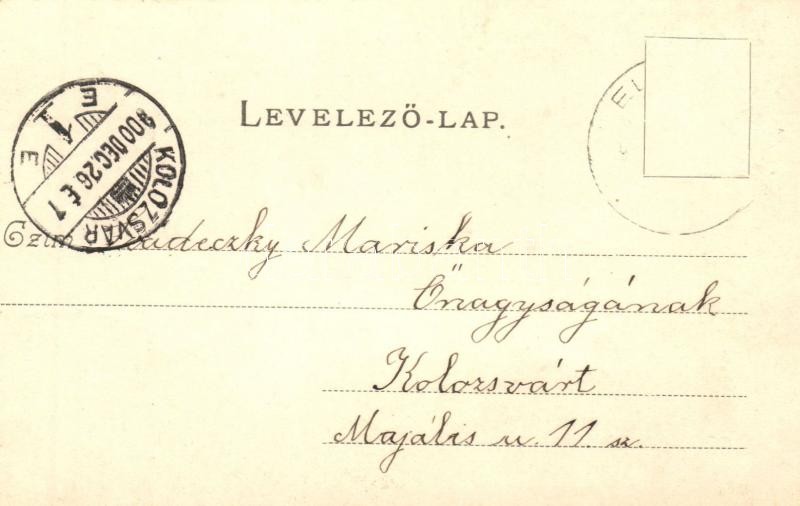 LEVELEZŐ-LAP.
KOLOZSVÁR
900 DEC. 26 É 1
E 1 E
EL
Czim
Mariska
Őnagyságának
Kolozsvárt
Majális u. 11 sz.